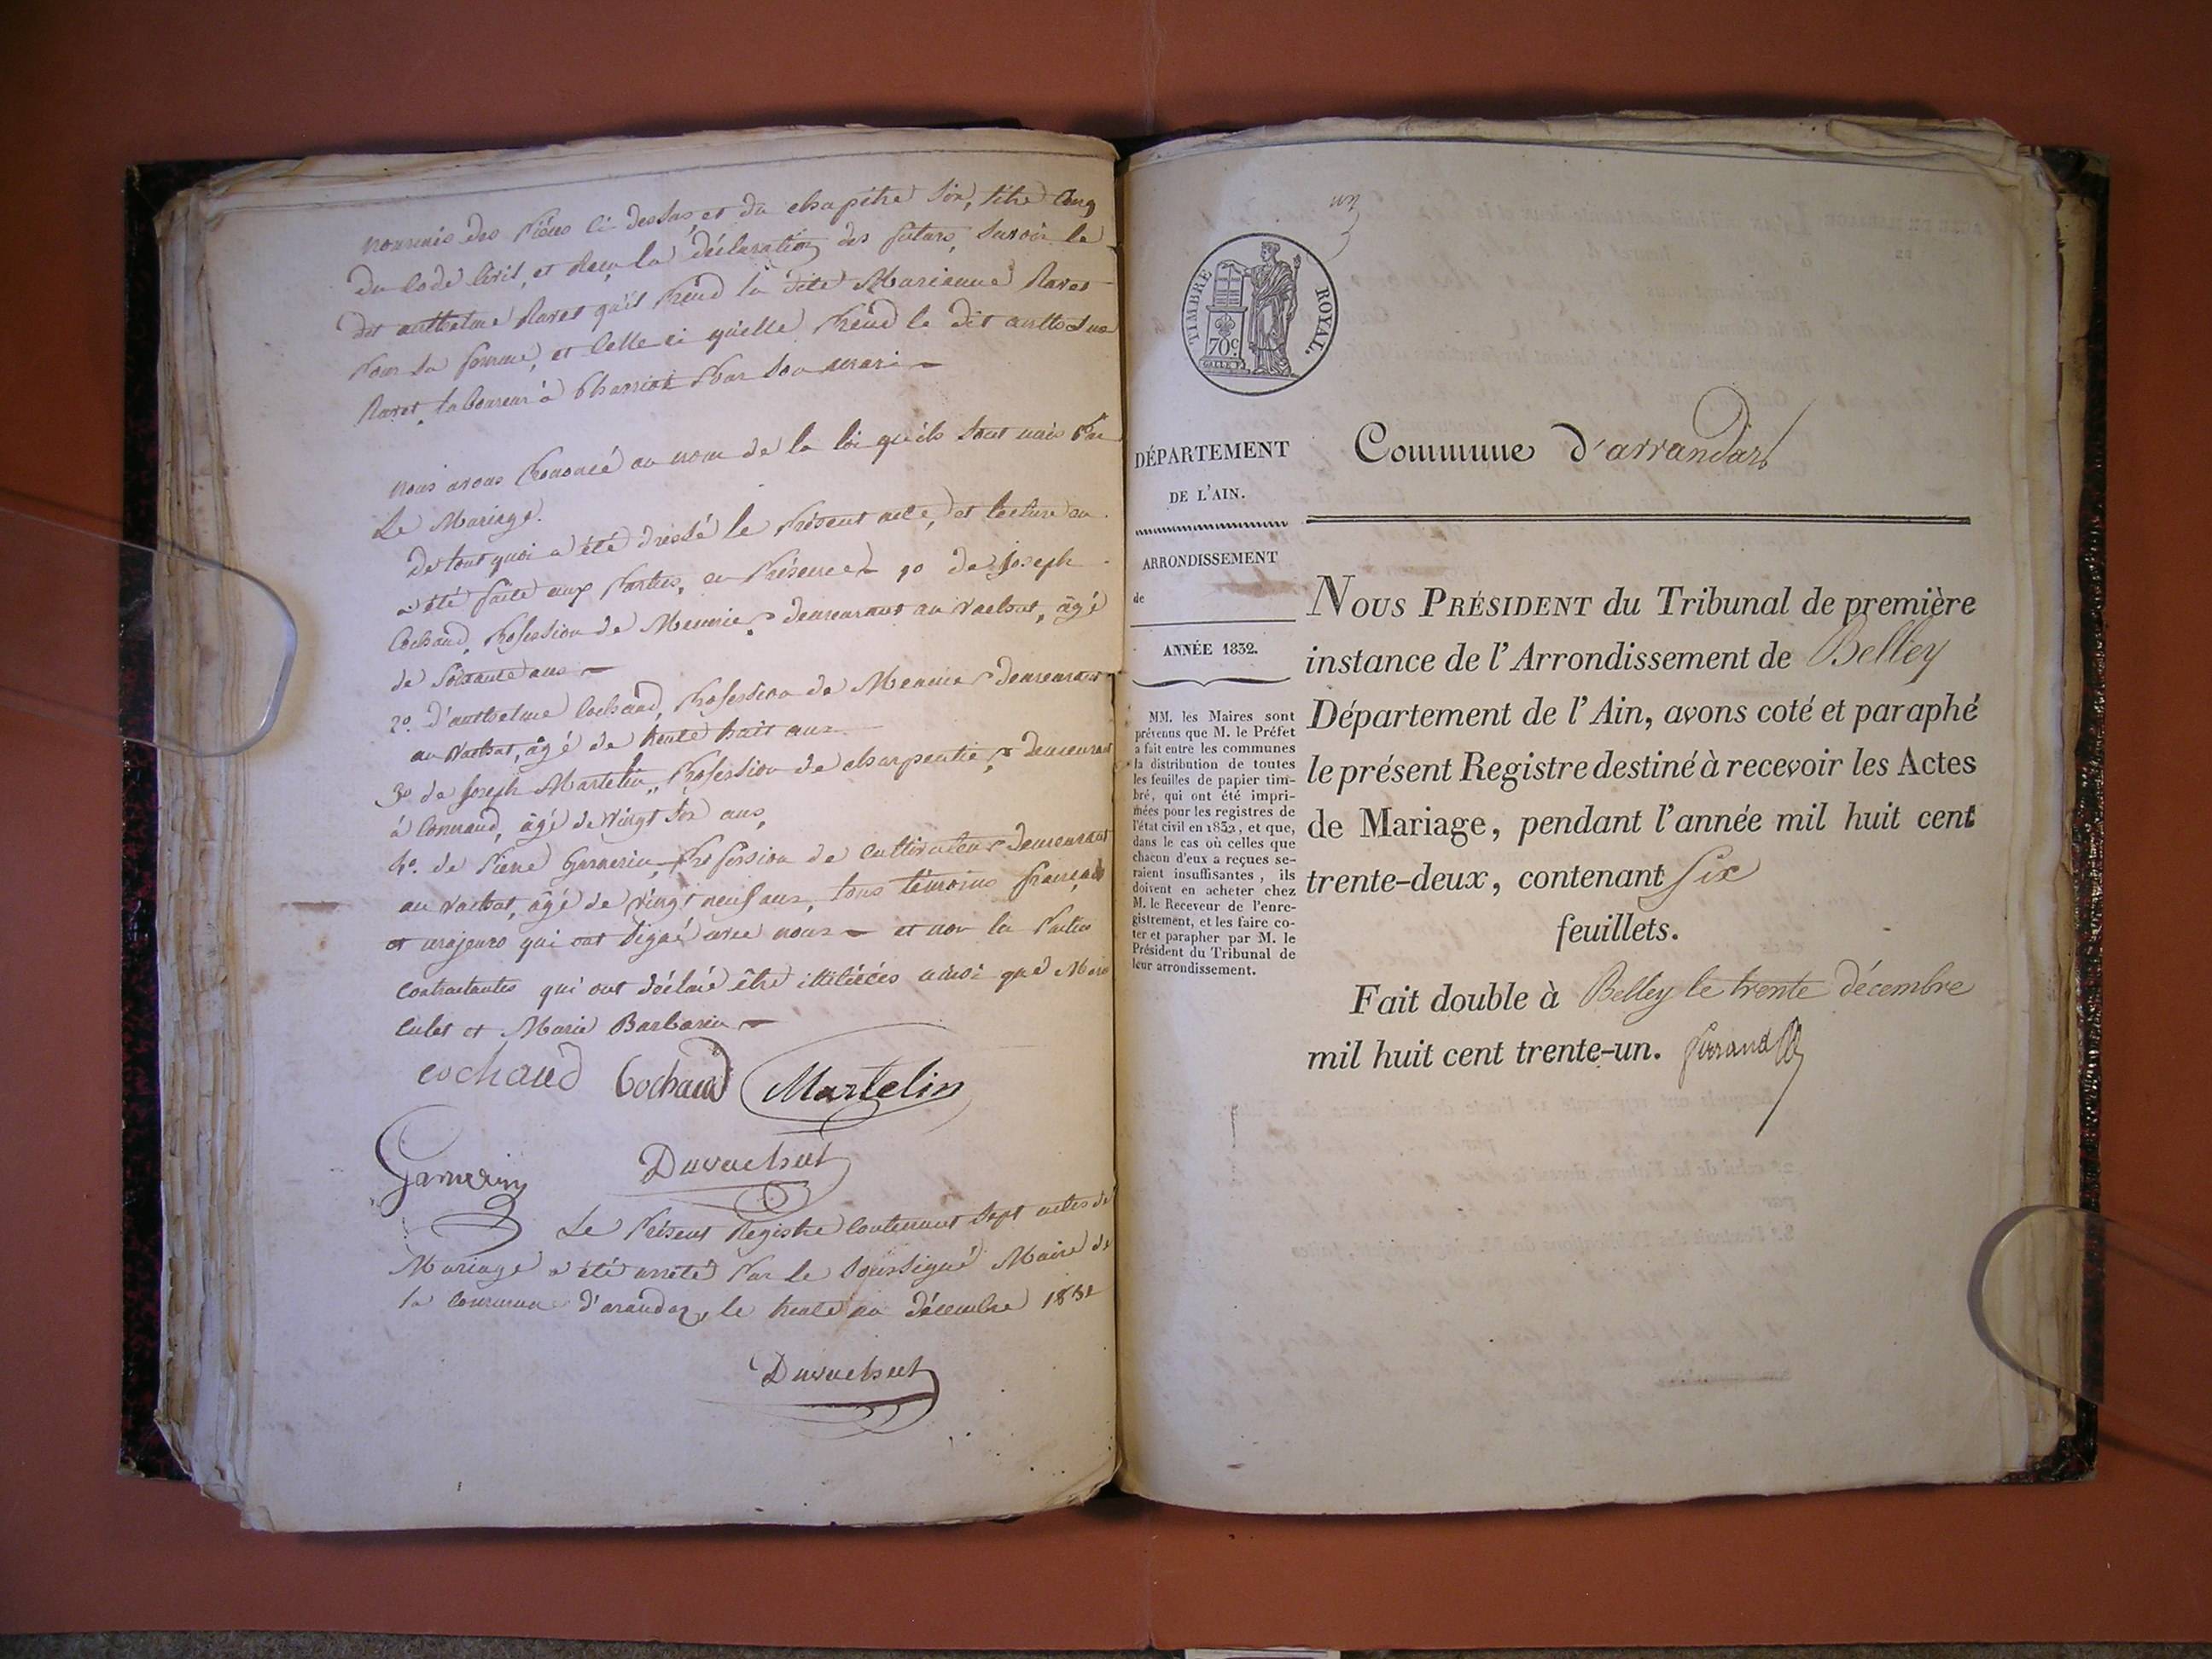 nommés des pièces ci dessus, et du chapitre six, titre cinq
du Code Civil, et Reçu la déclaration des futurs, savoir le
dit anthelme Ravet qu'il prend la dite Marianne Ravet
pour sa femme, et Celle ci qu'elle prend le dit anthelme
Ravet, laboureur à pour son mari
nous avons prononcé au nom de la loi qu'ils sont unis par
Le Mariage.
De tout quoi a été dressé le présent acte, et lecture en
a été faite aux parties, en présence 1o de joseph
Cochaud, profession de Meunier demeurant au vachat, âgé
de soixante ans
2o. d'anthelme Cochaud, profession de Meunier demeurant
au vachat, âgé de trente huit ans
3o de joseph Martelin, profession de charpentier demeurant
à Conand, âgé de vingt six ans,
4o. de Pierre Garnerin, profession de cultivateur demeurant
au vachat, âgé de vingt neuf ans, tous témoins français
et majeurs qui ont signé avec nous et non les parties
contractantes qui ont déclaré être illitérées ainsi que Marie
Culet et Marie Barbarin
cochaud Cochaud Martelin
Garnerin Duvachat
Le présent Registre contenant sept actes de
Mariage a été arrêté par le soussigné Maire de
la commune d'arandas, le trente un décembre 1831
Duvachat
un
TIMBRE ROYAL.
70c
DÉPARTEMENT
DE L'AIN.
ARRONDISSEMENT
de
ANNÉE 1832.
MM. les Maires sont
prévenus que M. le Préfet
a fait entre les communes
la distribution de toutes
les feuilles de papier tim-
bré, qui ont été impri-
mées pour les registres de
l'état civil en 1832, et que,
dans le cas où celles que
chacun d'eux a reçues se-
raient insuffisantes, ils
doivent en acheter chez
M. le Receveur de l'enre-
gistrement, et les faire co-
ter et parapher par M. le
Président du Tribunal de
leur arrondissement.
Commune d'arrandas
NOUS PRÉSIDENT du Tribunal de première
instance de l'Arrondissement de Belley
Département de l'Ain, avons coté et paraphé
le présent Registre destiné à recevoir les Actes
de Mariage, pendant l'année mil huit cent
trente-deux, contenant six
feuillets.
Fait double à Belley le trente décembre
mil huit cent trente-un.